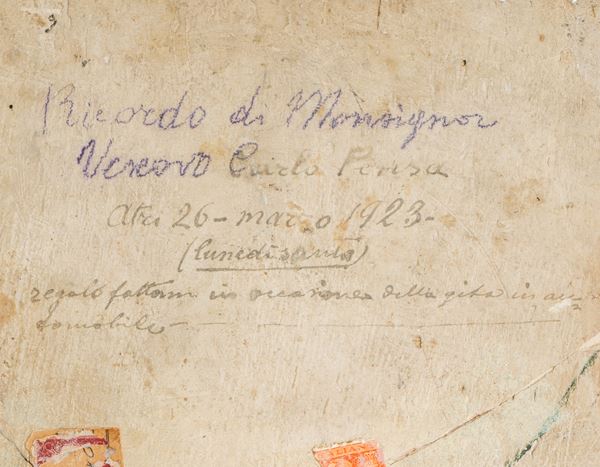 Ricordo di Monsignor
Vescovo Carlo Pensa
Atri 26 - marzo 1923 -
(lunedì santo)
regalo fattomi in occasione della gita in au-
tomobile -